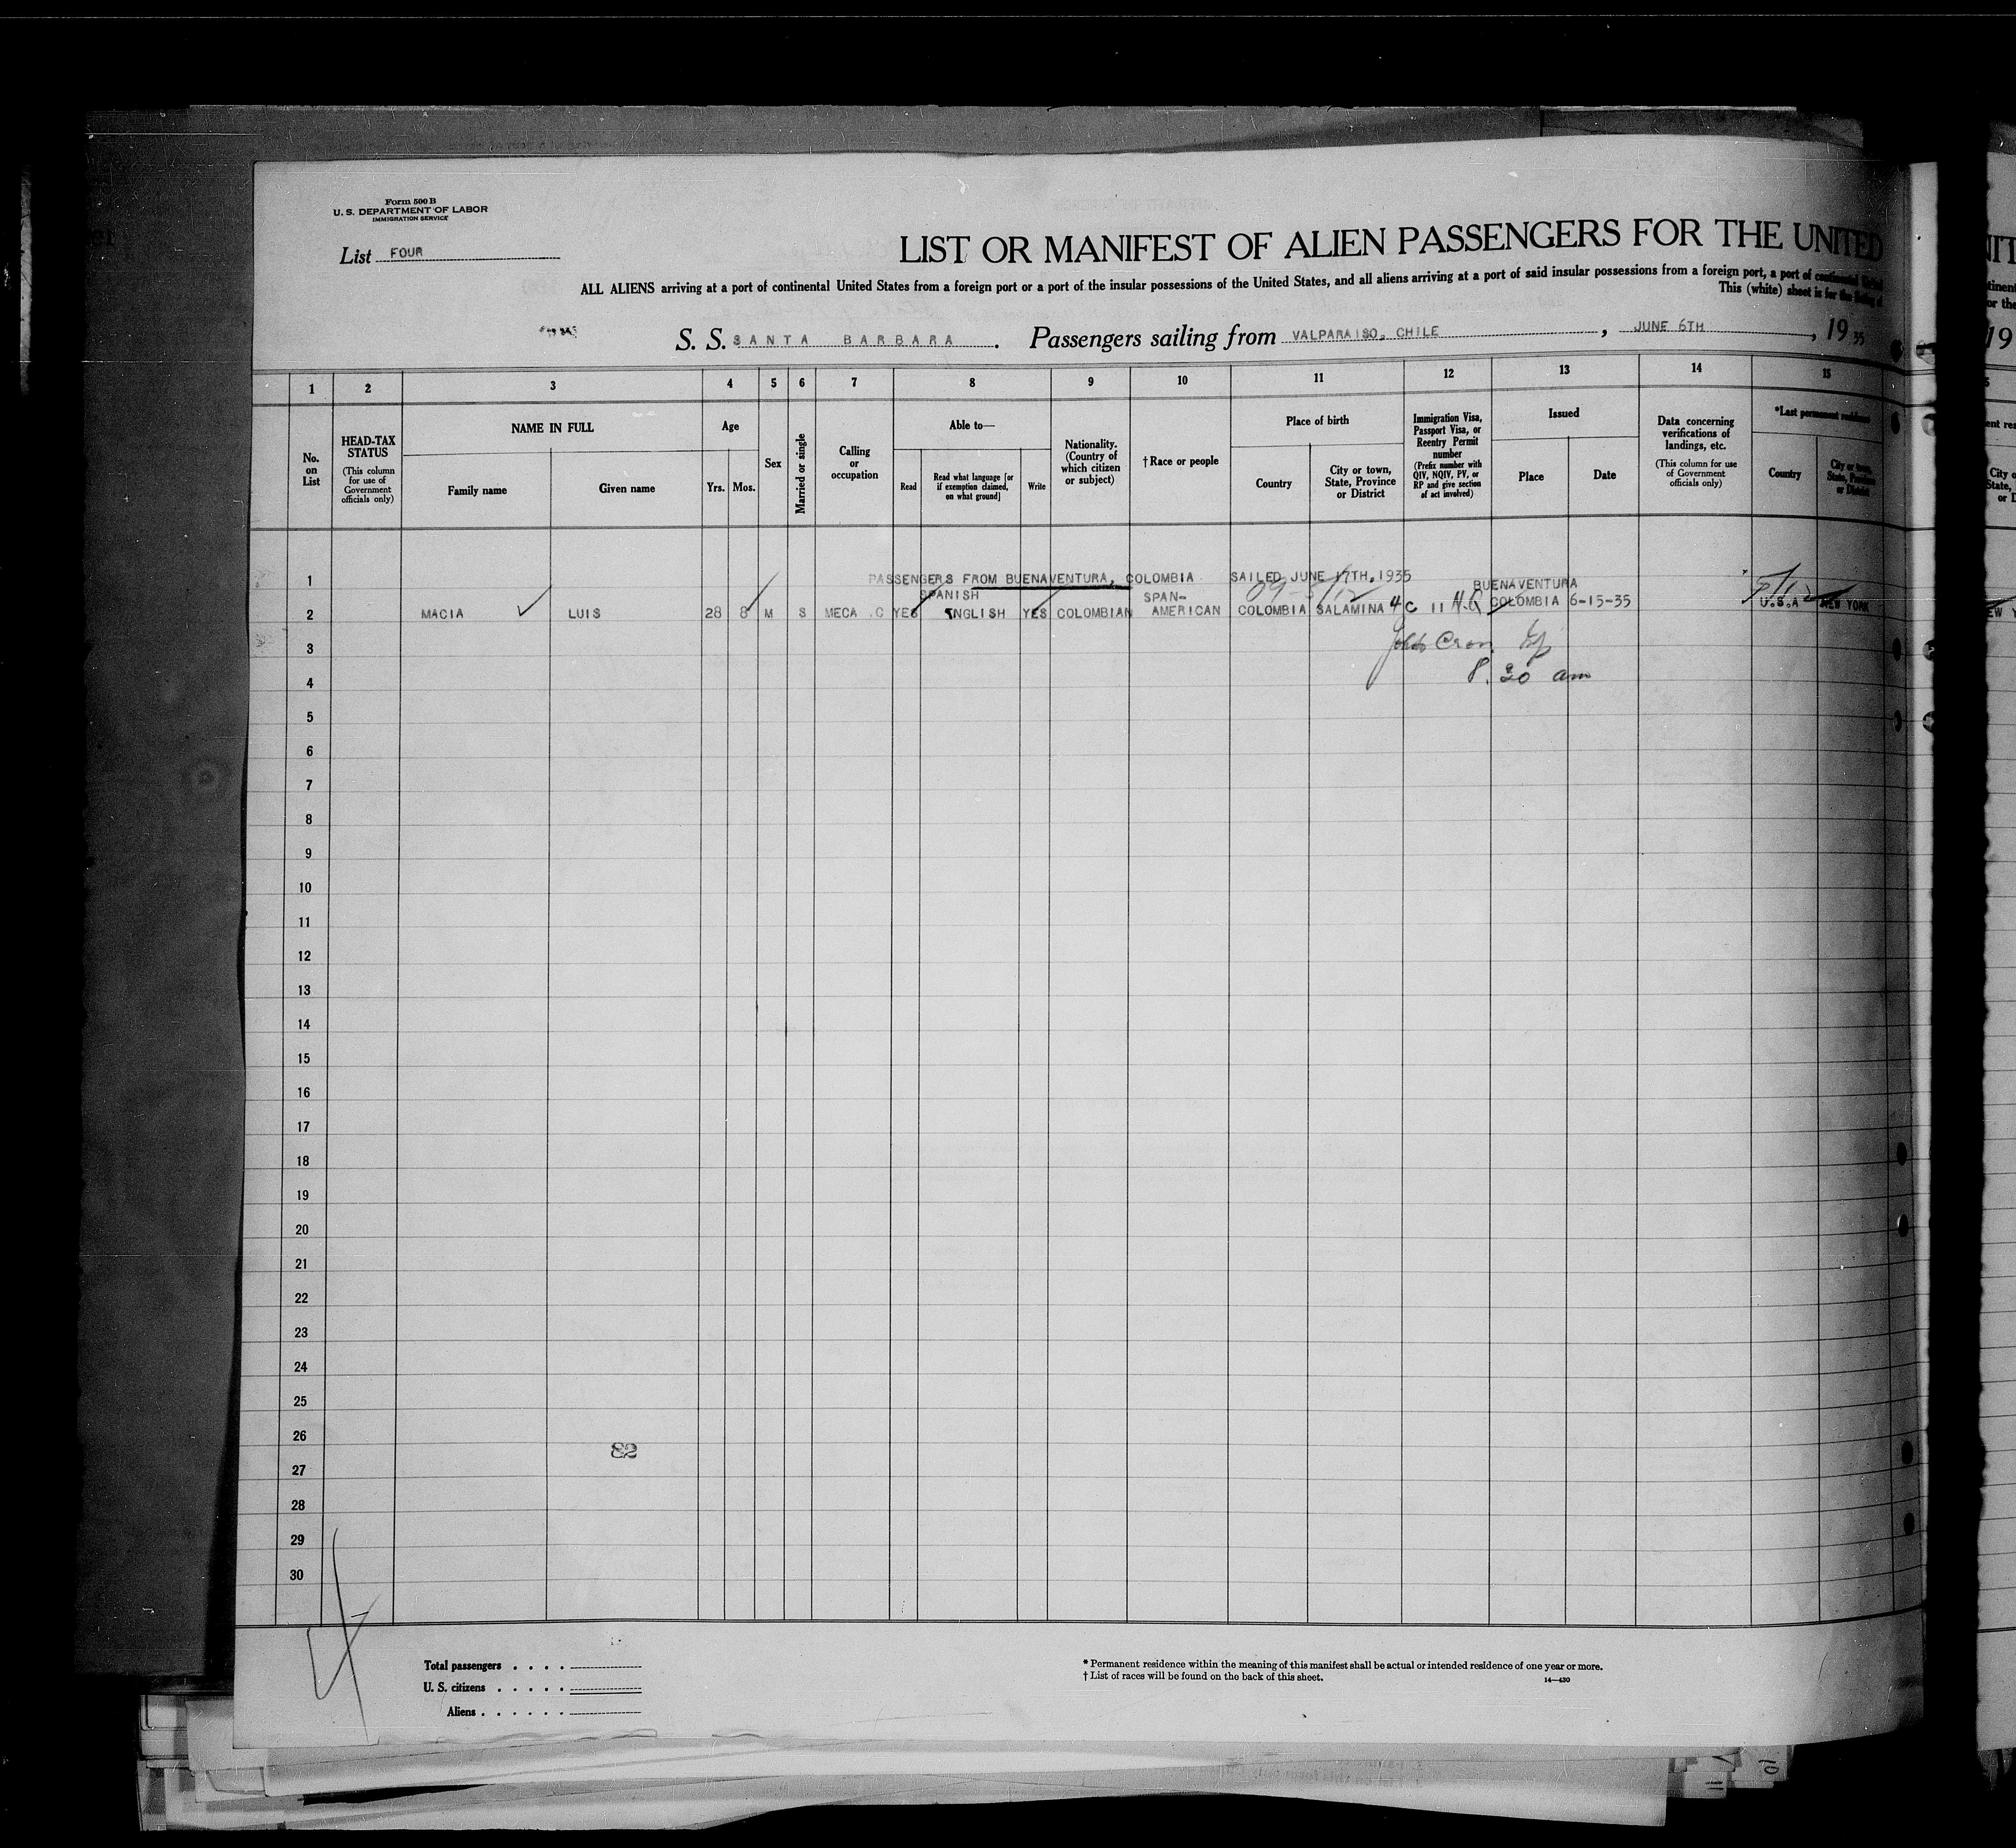 Form 500 B
U. S. DEPARTMENT OF LABOR
IMMIGRATION SERVICE
List FOUR
LIST OR MANIFEST OF ALIEN PASSENGERS FOR THE UNITED
ALL ALIENS arriving at a port of continental United States from a foreign port or a port of the insular possessions of the United States, and all aliens arriving at a port of said insular possessions from a foreign port, a port of continental United
This (white) sheet is for the listing of
S. S. SANTA BARBARA. Passengers sailing from VALPARAISO, CHILE, JUNE 6TH, 1935
1 2 3 4 5 6 7 8 9 10 11 12 13 14 15
No. on List
HEAD-TAX STATUS (This column for use of Government officials only)
NAME IN FULL
Family name
Given name
Age
Yrs. Mos.
Sex
Married or single
Calling or occupation
Able to—
Read
Read what language [or if exemption claimed, on what ground]
Write
Nationality. (Country of which citizen or subject)
† Race or people
Place of birth
Country
City or town, State, Province or District
Immigration Visa, Passport Visa, or Reentry Permit number (Prefix number with QIV, NQIV, PV, or RP and give section of act involved)
Issued
Place
Date
Data concerning verifications of landings, etc. (This column for use of Government officials only)
*Last permanent residence
Country
City or town, State, Province or District
1 PASSENGERS FROM BUENAVENTURA, COLOMBIA SAILED JUNE 17TH, 1935
SPANISH SPAN- BUENAVENTURA
2 MACIA LUIS 28 8 M S MECA C YES ENGLISH YES COLOMBIAN AMERICAN COLOMBIA SALAMINA 4 C 11 COLOMBIA 6-15-35 U.S.A NEW YORK
3
4 8.30 am
5
6
7
8
9
10
11
12
13
14
15
16
17
18
19
20
21
22
23
24
25
26
82
27
28
29
30
4
Total passengers
U. S. citizens
Aliens
* Permanent residence within the meaning of this manifest shall be actual or intended residence of one year or more.
† List of races will be found on the back of this sheet.
14—430